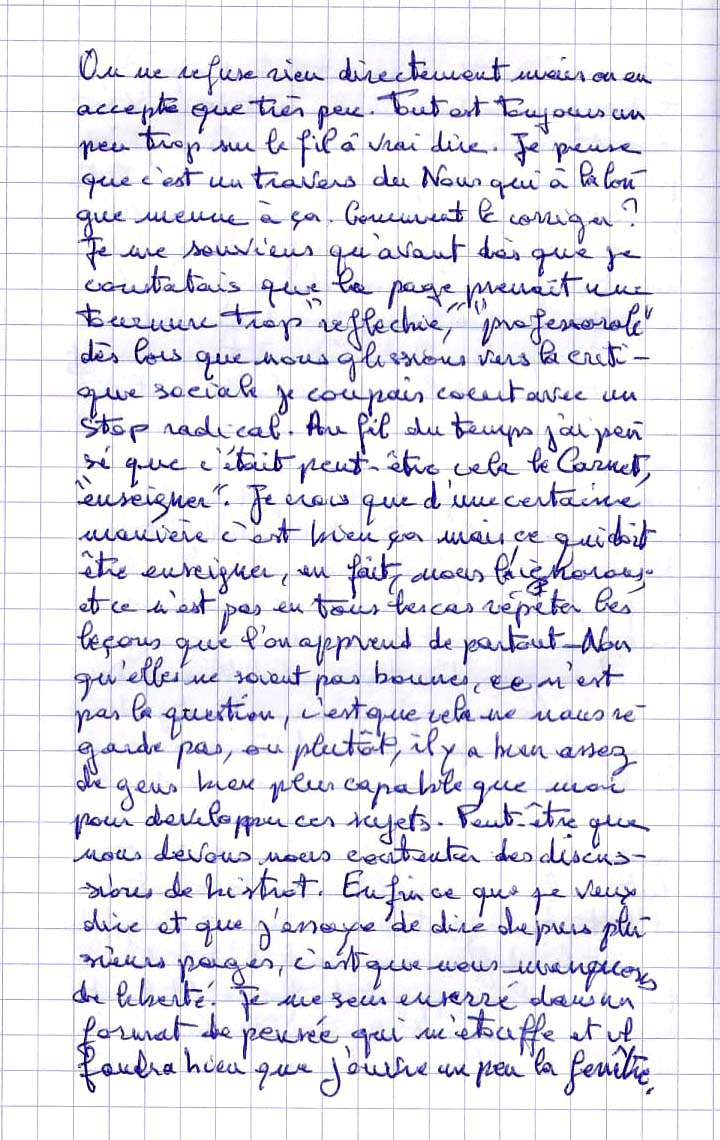 On ne refuse rien directement mais on en
accepte que très peu. Tout est toujours un
peu trop sur le fil à vrai dire. Je pense
que c'est un travers du Nous qui à la lon
gue mène à ça. Comment le corriger ?
Je me souviens qu'avant dès que je
constatais que la page prenait une
tournure trop "reflechie," "professorale"
dès lors que nous glissions vers la criti-
que sociale je coupais court avec un
stop radical. Au fil du temps j'ai pen
sé que c'était peut-être cela le Carnet,
"enseigner". Je crois que d'une certaine
manière c'est bien ça mais ce qui doit
être enseigner, en fait, nous l'ignorons.
et ce n'est pas en tous les cas répéter les
leçons que l'on apprend de partout - Non
qu'elles ne soient pas bonnes, ce n'est
pas la question, c'est que cela ne nous re
garde pas, ou plutôt, il y a bien assez
de gens bien plus capable que moi
pour developper ces sujets. Peut-être que
nous devons nous contenter des discus-
sions de bistrot. Enfin ce que je veux
dire et que j'essaye de dire depuis plu
sieurs pages, c'est que nous manquons
de liberté. Je me sens enserré dans un
format de pensée qui m'étouffe et il
faudra bien que j'ouvre un peu la fenêtre.